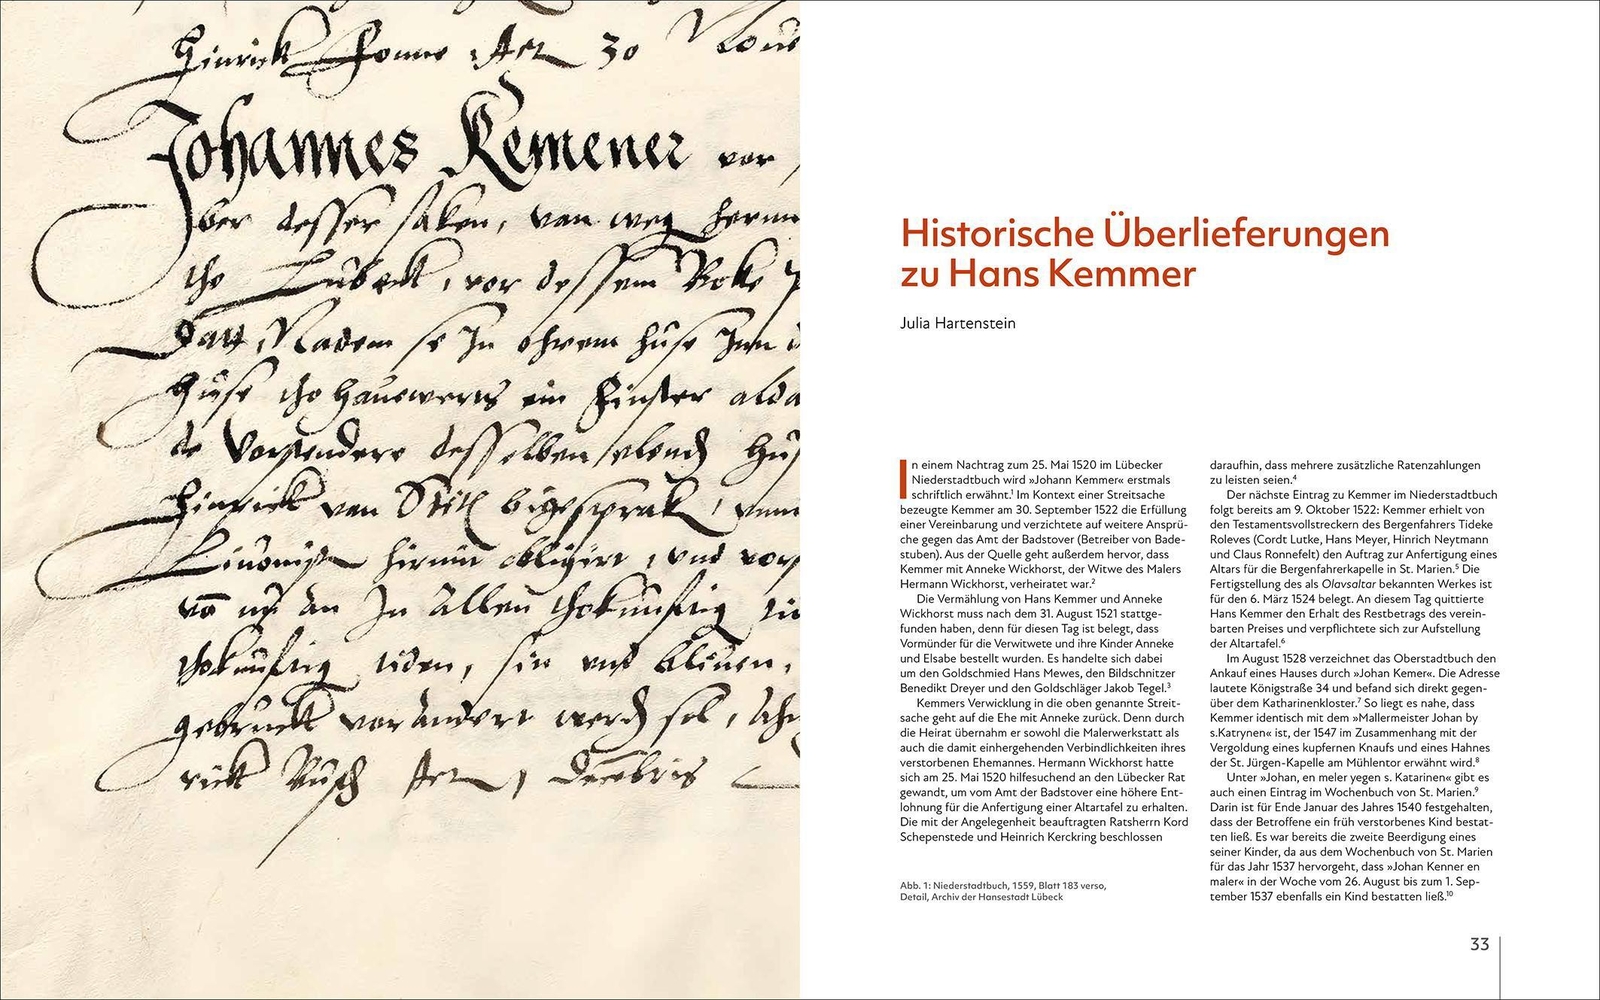 Hinrick
Johannes Kemener vor
ber desser saken, van weg
tho Lubeck, vor dessem
se In ohrem huse
Huse tho ein Finster alda
de desselben
Hinrick van
In allen
tiden, sin und bliven,
vor andere
Historische Überlieferungen
zu Hans Kemmer
Julia Hartenstein
In einem Nachtrag zum 25. Mai 1520 im Lübecker
Niederstadtbuch wird »Johann Kemmer« erstmals
schriftlich erwähnt.¹ Im Kontext einer Streitsache
bezeugte Kemmer am 30. September 1522 die Erfüllung
einer Vereinbarung und verzichtete auf weitere Ansprü-
che gegen das Amt der Badstover (Betreiber von Bade-
stuben). Aus der Quelle geht außerdem hervor, dass
Kemmer mit Anneke Wickhorst, der Witwe des Malers
Hermann Wickhorst, verheiratet war.²
Die Vermählung von Hans Kemmer und Anneke
Wickhorst muss nach dem 31. August 1521 stattge-
funden haben, denn für diesen Tag ist belegt, dass
Vormünder für die Verwitwete und ihre Kinder Anneke
und Elsabe bestellt wurden. Es handelte sich dabei
um den Goldschmied Hans Mewes, den Bildschnitzer
Benedikt Dreyer und den Goldschläger Jakob Tegel.³
Kemmers Verwicklung in die oben genannte Streit-
sache geht auf die Ehe mit Anneke zurück. Denn durch
die Heirat übernahm er sowohl die Malerwerkstatt als
auch die damit einhergehenden Verbindlichkeiten ihres
verstorbenen Ehemannes. Hermann Wickhorst hatte
sich am 25. Mai 1520 hilfesuchend an den Lübecker Rat
gewandt, um vom Amt der Badstover eine höhere Ent-
lohnung für die Anfertigung einer Altartafel zu erhalten.
Die mit der Angelegenheit beauftragten Ratsherrn Kord
Schepenstede und Heinrich Kerckring beschlossen
Abb. 1: Niederstadtbuch, 1559, Blatt 183 verso,
Detail, Archiv der Hansestadt Lübeck
daraufhin, dass mehrere zusätzliche Ratenzahlungen
zu leisten seien.⁴
Der nächste Eintrag zu Kemmer im Niederstadtbuch
folgt bereits am 9. Oktober 1522: Kemmer erhielt von
den Testamentsvollstreckern des Bergenfahrers Tideke
Roleves (Cordt Lutke, Hans Meyer, Hinrich Neytmann
und Claus Ronnefelt) den Auftrag zur Anfertigung eines
Altars für die Bergenfahrerkapelle in St. Marien.⁵ Die
Fertigstellung des als Olavsaltar bekannten Werkes ist
für den 6. März 1524 belegt. An diesem Tag quittierte
Hans Kemmer den Erhalt des Restbetrags des verein-
barten Preises und verpflichtete sich zur Aufstellung
der Altartafel.⁶
Im August 1528 verzeichnet das Oberstadtbuch den
Ankauf eines Hauses durch »Johan Kemer«. Die Adresse
lautete Königstraße 34 und befand sich direkt gegen-
über dem Katharinenkloster.⁷ So liegt es nahe, dass
Kemmer identisch mit dem »Mallermeister Johan by
s.Katrynen« ist, der 1547 im Zusammenhang mit der
Vergoldung eines kupfernen Knaufs und eines Hahnes
der St. Jürgen-Kapelle am Mühlentor erwähnt wird.⁸
Unter »Johan, en meler yegen s. Katarinen« gibt es
auch einen Eintrag im Wochenbuch von St. Marien.⁹
Darin ist für Ende Januar des Jahres 1540 festgehalten,
dass der Betroffene ein früh verstorbenes Kind bestat-
ten ließ. Es war bereits die zweite Beerdigung eines
seiner Kinder, da aus dem Wochenbuch von St. Marien
für das Jahr 1537 hervorgeht, dass »Johan Kenner en
maler« in der Woche vom 26. August bis zum 1. Sep-
tember 1537 ebenfalls ein Kind bestatten ließ.¹⁰
33